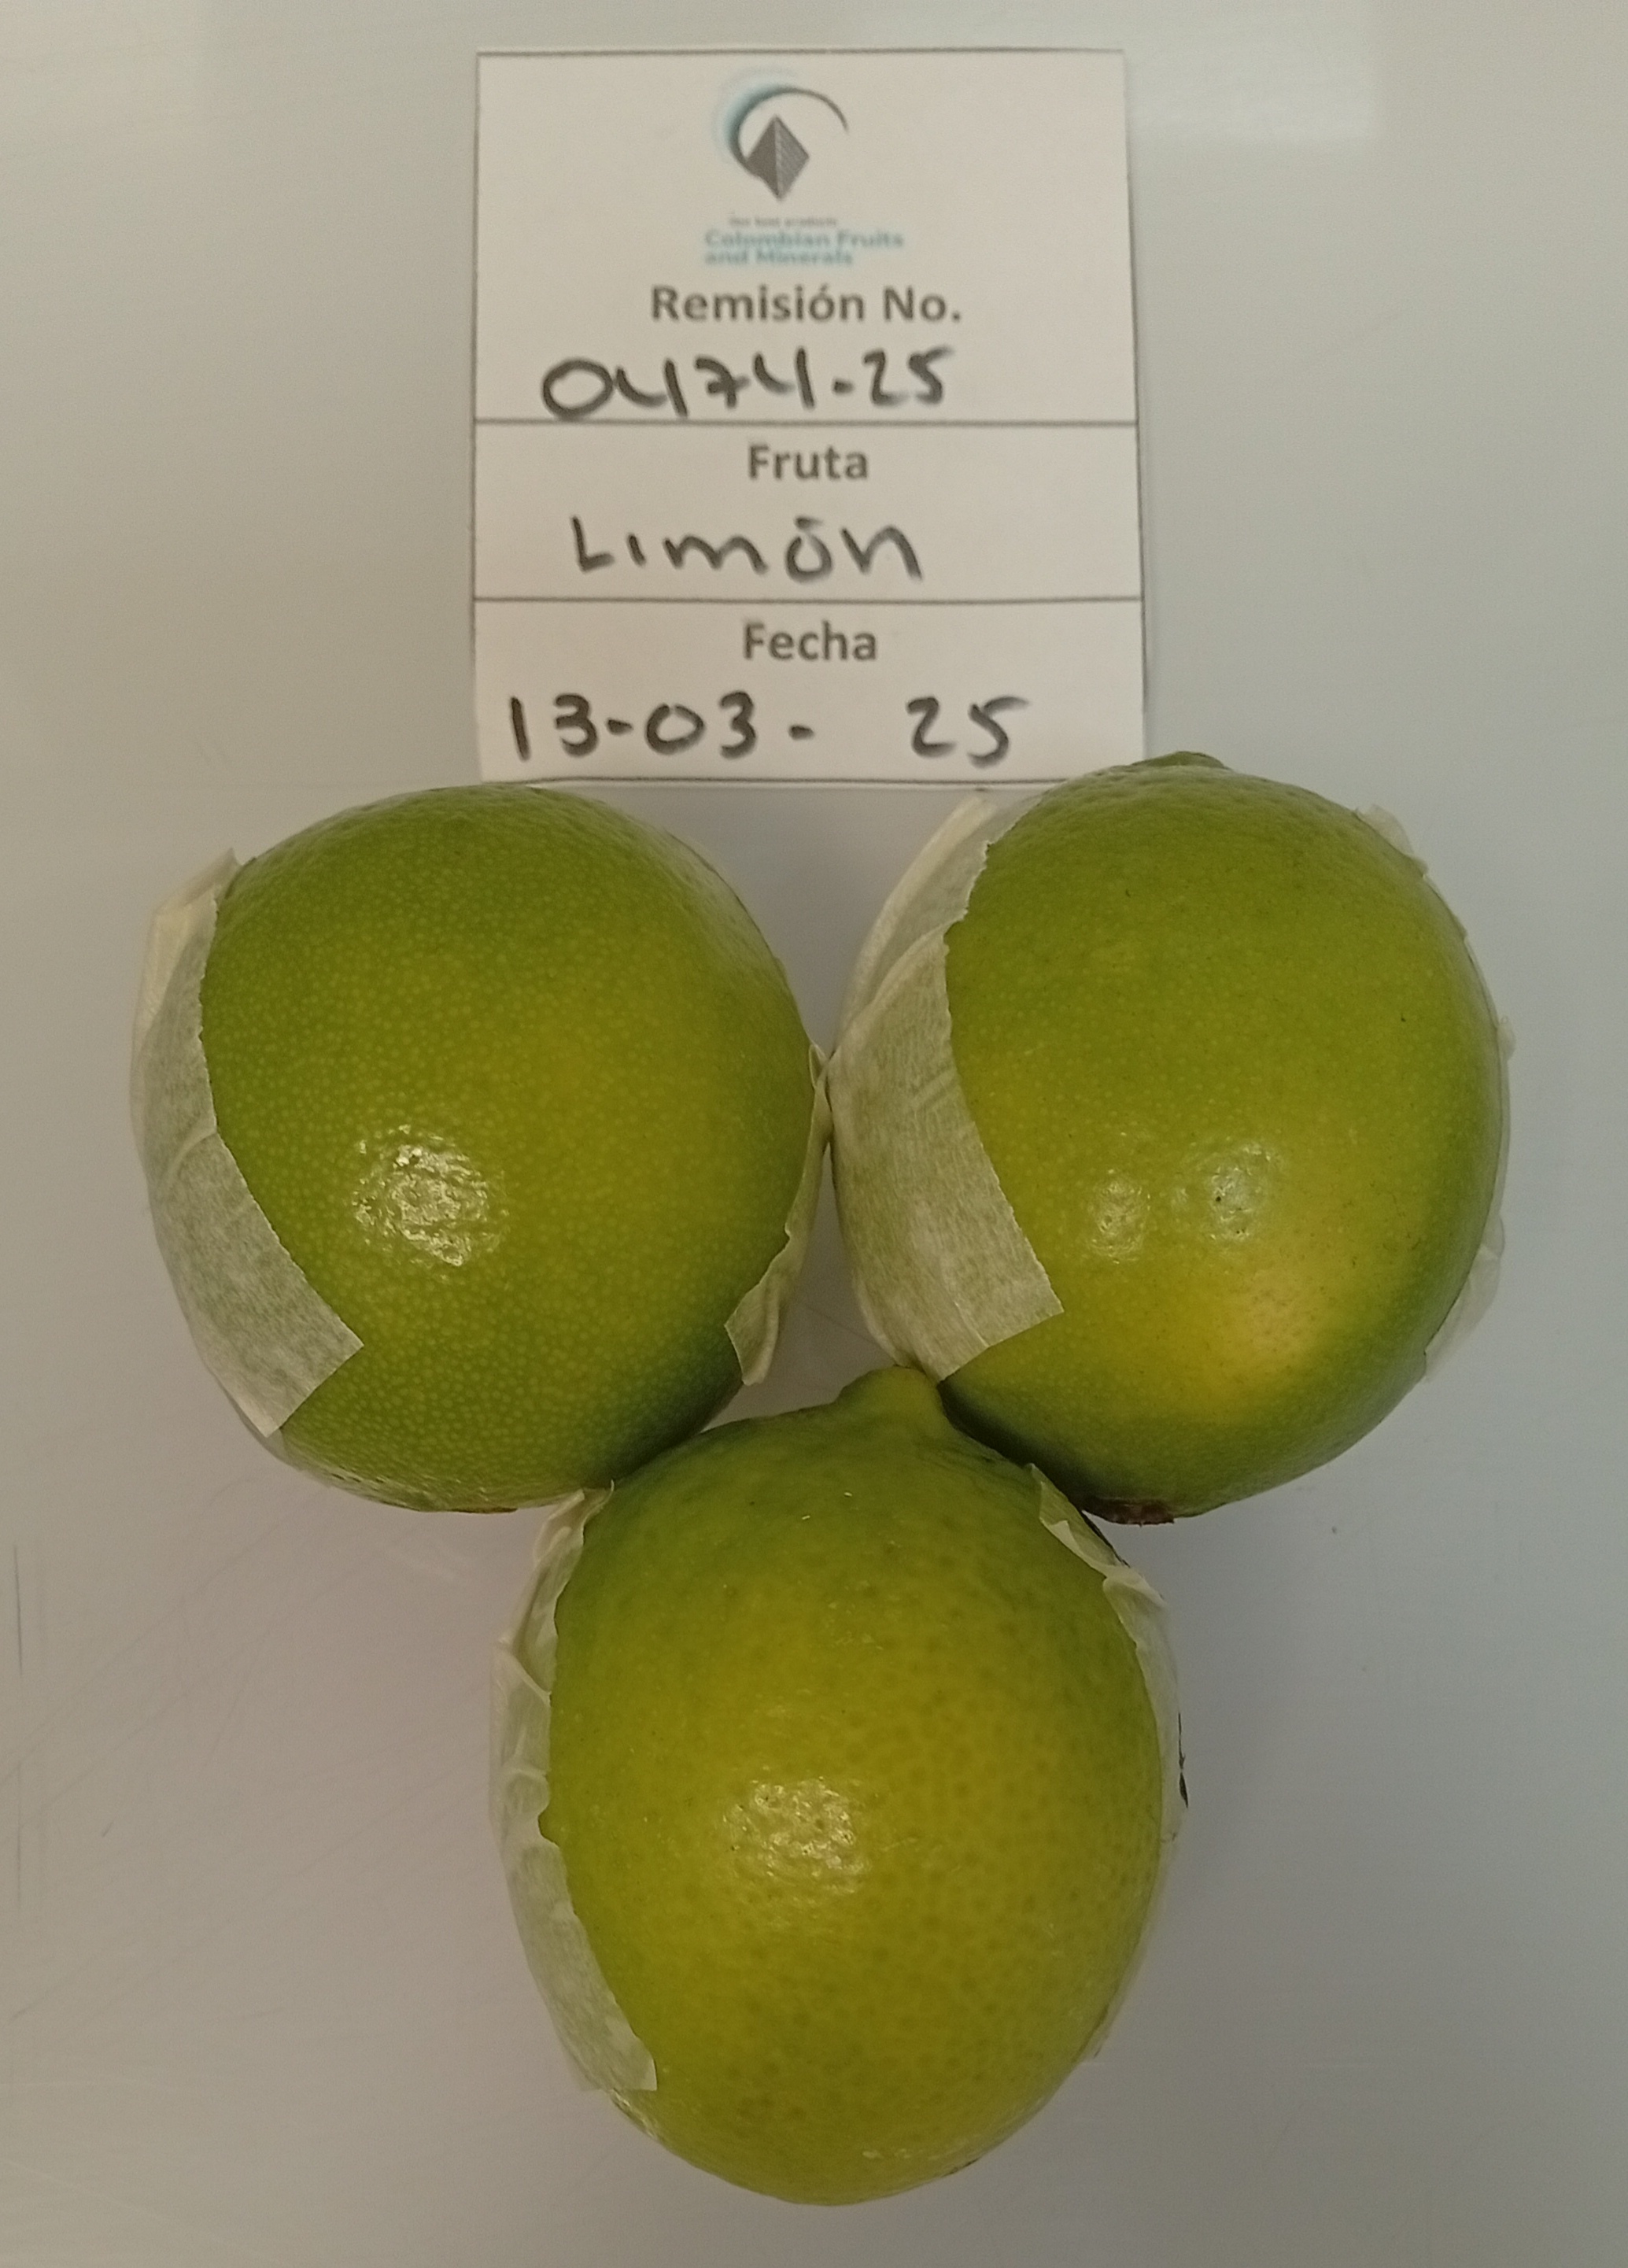 Our best products
Colombian Fruits
and Minerals
Remisión No.
0474-25
Fruta
Limón
Fecha
13-03- 25